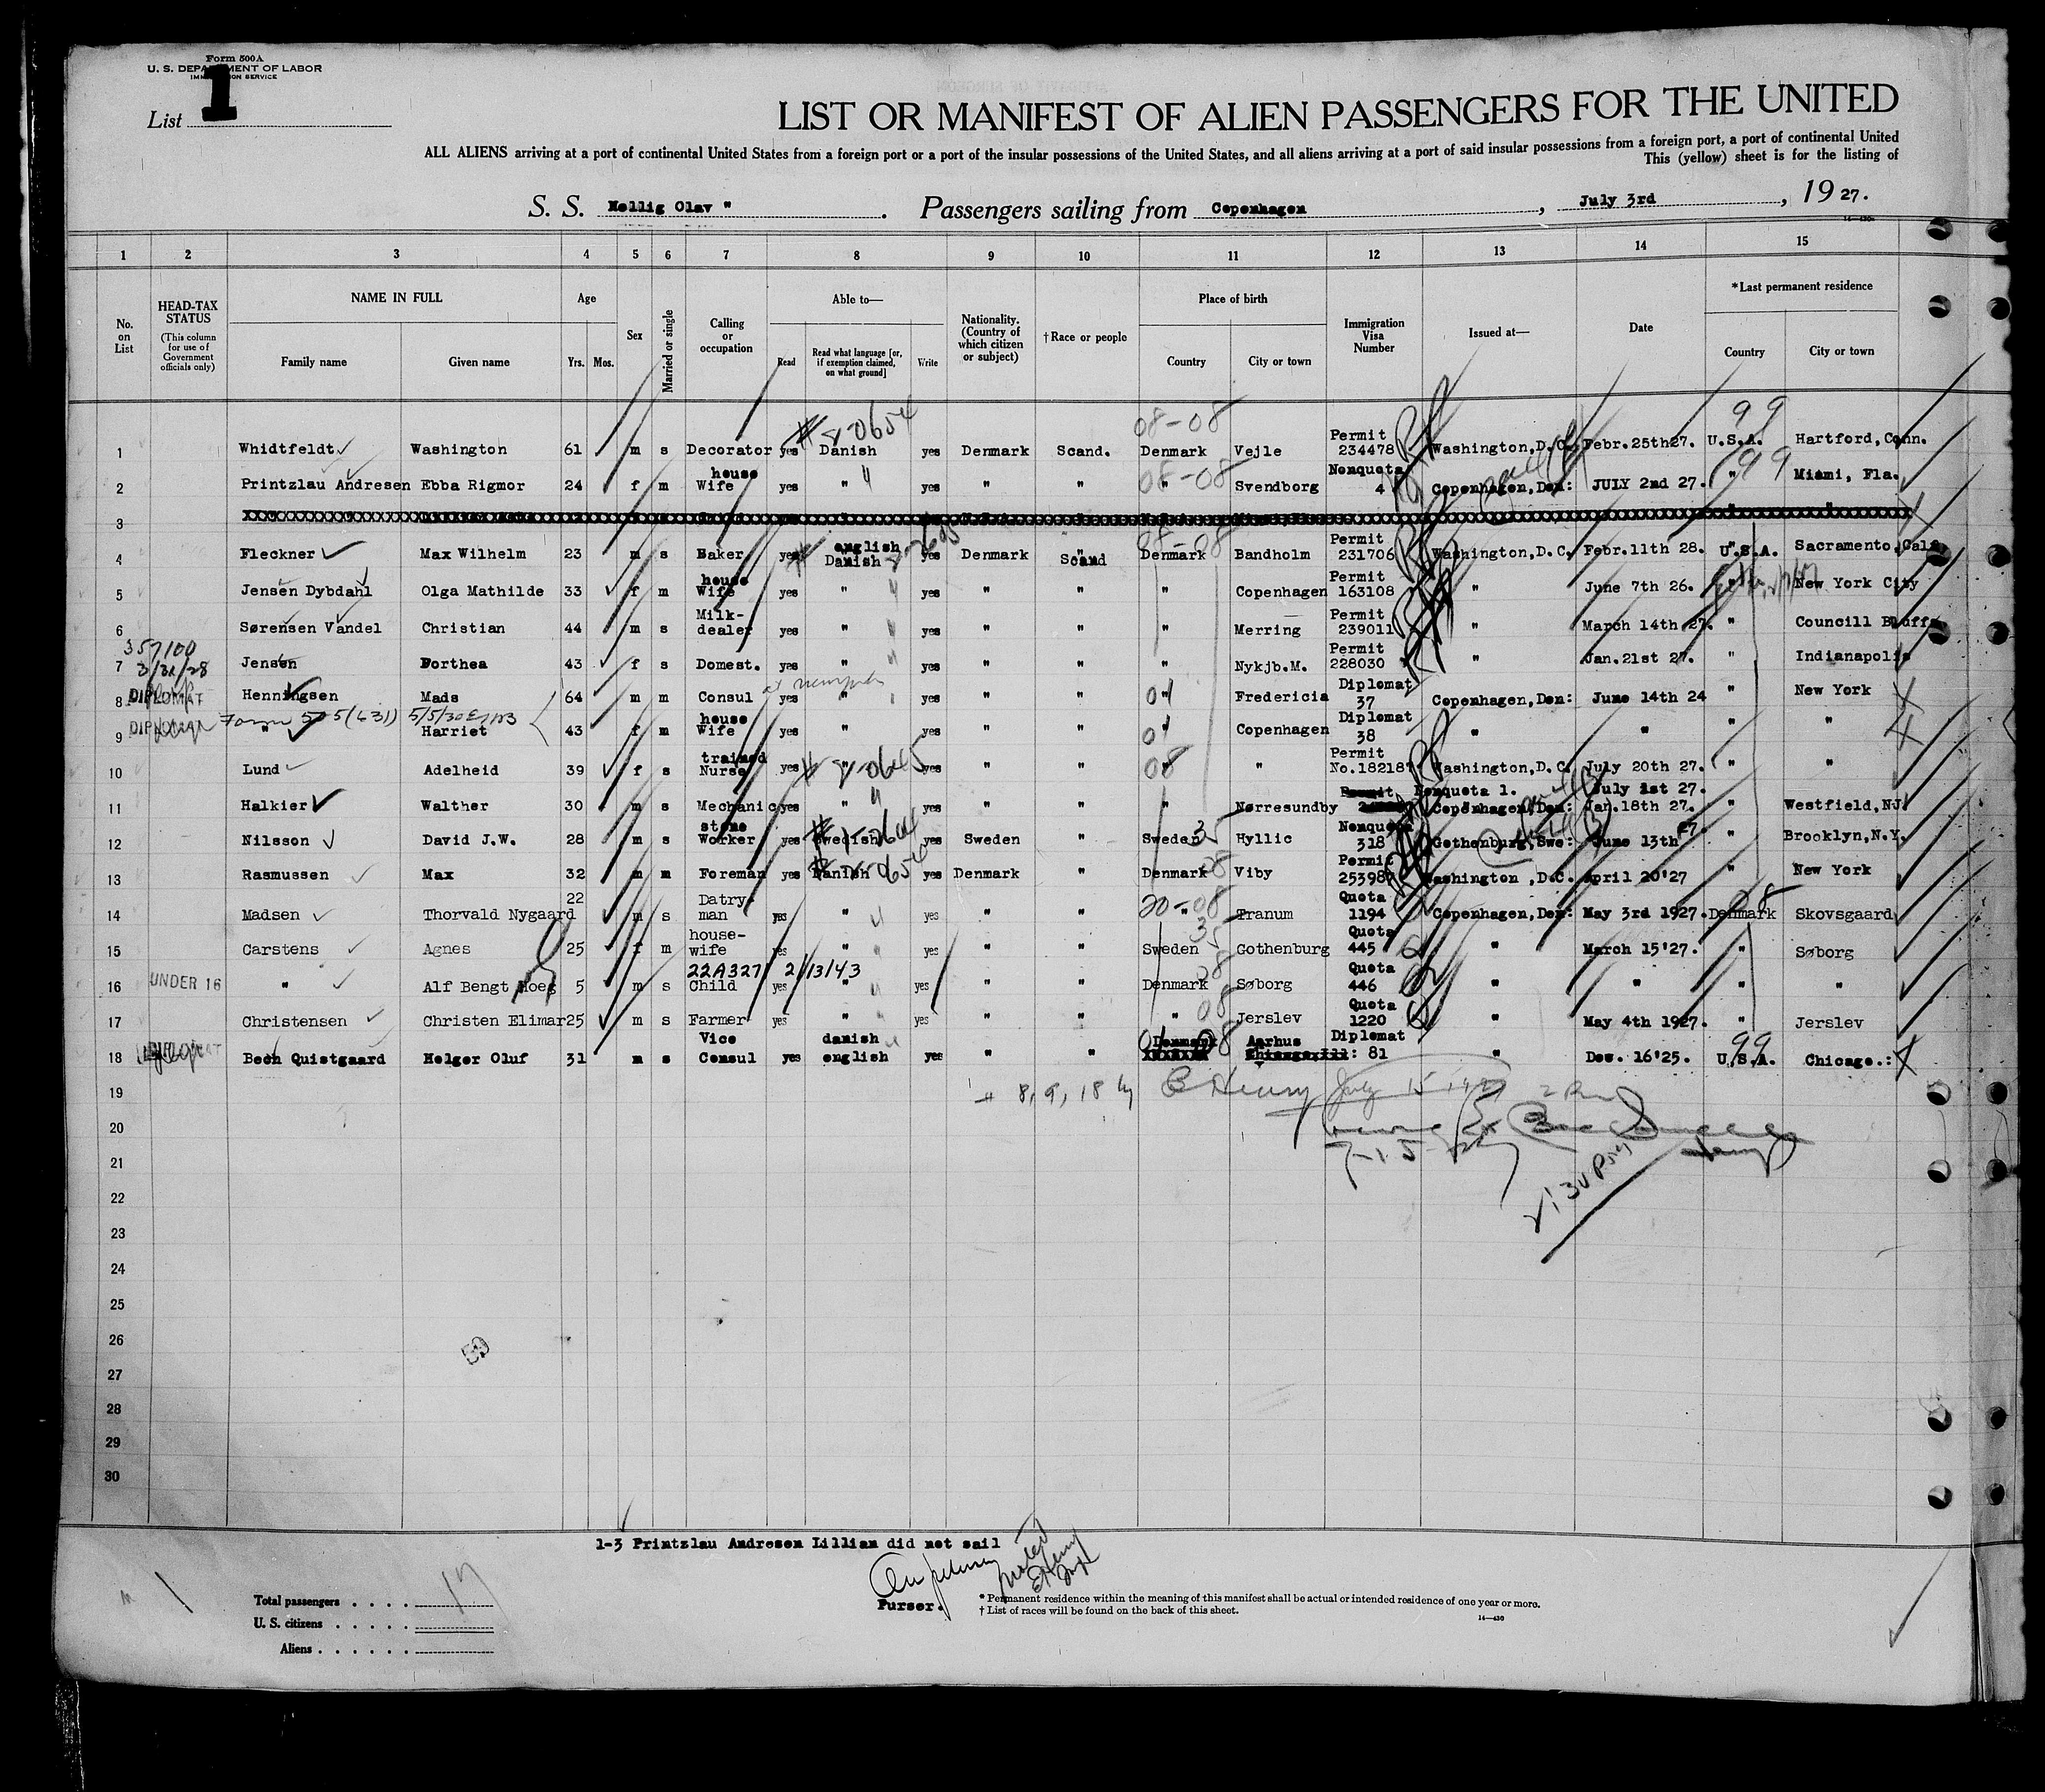 Form 500A
U. S. DEPARTMENT OF LABOR
IMMIGRATION SERVICE
List 1
LIST OR MANIFEST OF ALIEN PASSENGERS FOR THE UNITED
ALL ALIENS arriving at a port of continental United States from a foreign port or a port of the insular possessions of the United States, and all aliens arriving at a port of said insular possessions from a foreign port, a port of continental United
This (yellow) sheet is for the listing of
S. S. Hellig Olav " . Passengers sailing from Copenhagen , July 3rd , 19 27.
1 2 3 4 5 6 7 8 9 10 11 12 13 14 15
No. on List HEAD-TAX STATUS (This column for use of Government officials only) NAME IN FULL Family name Given name Age Yrs. Mos. Sex Married or single Calling or occupation Able to— Read Read what language [or, if exemption claimed, on what ground] Write Nationality. (Country of which citizen or subject) †Race or people Place of birth Country City or town Immigration Visa Number Issued at— Date *Last permanent residence Country City or town
1 Whidtfeldt Washington 61 m s Decorator yes Danish yes Denmark Scand. Denmark Vejle Permit 234478 Washington,D.C. Febr.25th27. U.S.A. Hartford,Conn.
2 Printzlau Andresen Ebba Rigmor 24 f m house Wife yes " yes " " " Svendborg Nonquota 4 Copenhagen,Den: JULY 2nd 27. " Miami, Fla.
3
4 Fleckner Max Wilhelm 23 m s Baker yes english Danish yes Denmark Scand Denmark Bandholm Permit 231706 Washington,D.C. Febr.11th 28. U.S.A. Sacramento,Calf.
5 Jensen Dybdahl Olga Mathilde 33 f m house Wife yes " yes " " " Copenhagen Permit 163108 " June 7th 26. " New York City
6 Sørensen Vandel Christian 44 m s Milk-dealer yes " yes " " " Merring Permit 239011 " March 14th 27. " Councill Bluffs
357100
3/31/28
7 Jensen Dorthea 43 f s Domest. yes " yes " " " Nykjb.M. Permit 228030 " Jan.21st 27. " Indianapolis
8 DIPLOMAT Henningsen Mads 64 m m Consul yes " yes " " " Fredericia Diplomat 37 Copenhagen,Den: June 14th 24 " New York
9 " Harriet 43 f m house Wife yes " yes " " " Copenhagen Diplomat 38 " " " "
10 Lund Adelheid 39 f s trained Nurse yes " yes " " " " Permit No.18218 Washington,D.C. July 20th 27. " "
11 Halkier Walther 30 m s Mechanic yes " yes " " " Nørresundby Nonquota 1. Copenhagen,Den: July 1st 27. Jan.18th 27. " Westfield,NJ.
12 Nilsson David J.W. 28 m s stone Worker yes Swedish yes Sweden " Sweden Hyllic Nonquota 318 Gothenburg,Swe: June 13th 27. " Brooklyn,N.Y.
13 Rasmussen Max 32 m m Foreman yes Danish yes Denmark " Denmark Viby Permit 25398 Washington ,D.C. April 20'27 " New York
14 Madsen Thorvald Nygaard 22 m s Datry-man yes " yes " " " Tranum Quota 1194 Copenhagen,Den: May 3rd 1927. Denmark Skovsgaard
15 Carstens Agnes 25 f m house-wife yes " yes " " Sweden Gothenburg Quota 445 " March 15'27. " Søborg
22A327 2/13/43
16 UNDER 16 " Alf Bengt Hoeg 5 m s Child yes " yes " " Denmark Søborg Quota 446 " " " "
17 Christensen Christen Elimar 25 m s Farmer yes " yes " " " Jerslev Quota 1220 " May 4th 1927. " Jerslev
18 Bech Quistgaard Holger Oluf 31 m s Vice Consul yes danish english yes " " Denmark Aarhus Diplomat 81 " Des. 16'25. U.S.A. Chicago.:
19 8, 9, 18 by
20
21
22
23
24
25
26
27
28
29
30
1-3 Printzlau Andresen Lillian did not sail
Purser.
Total passengers . . . . 17
U. S. citizens . . . . .
Aliens . . . . . .
* Permanent residence within the meaning of this manifest shall be actual or intended residence of one year or more.
† List of races will be found on the back of this sheet.
14—430